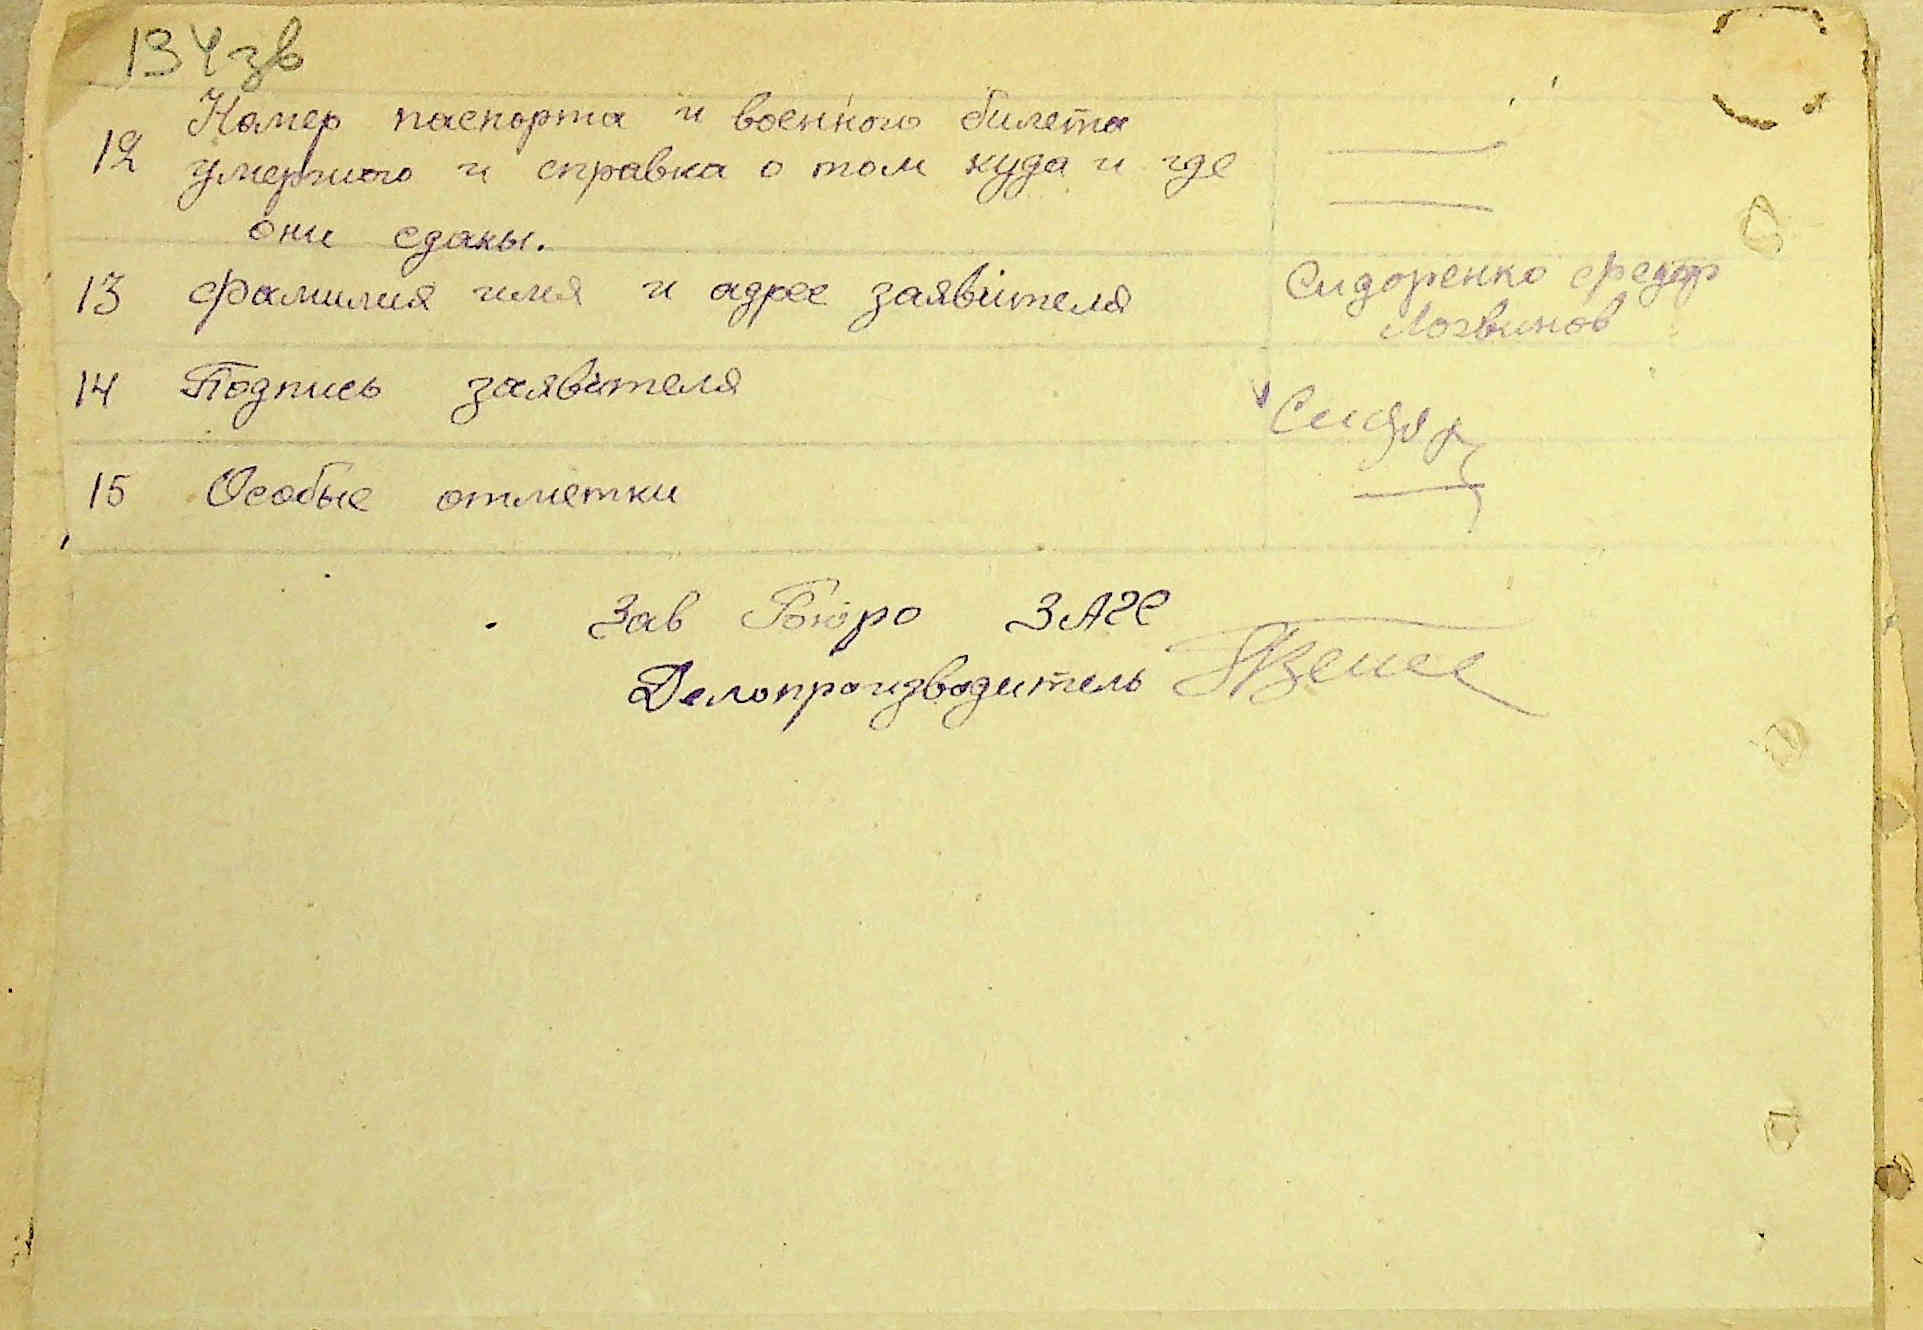 134зв
12 Номер паспорта и военного билета
умершого и справка о том куда и где
они сданы.
13 Фамилия имя и адрес заявителя
Сидоренко Федор
Логвинов
14 Подпись заявителя
Сидор
15 Особые отметки
Зав Бюро ЗАГС
Делопроизводитель